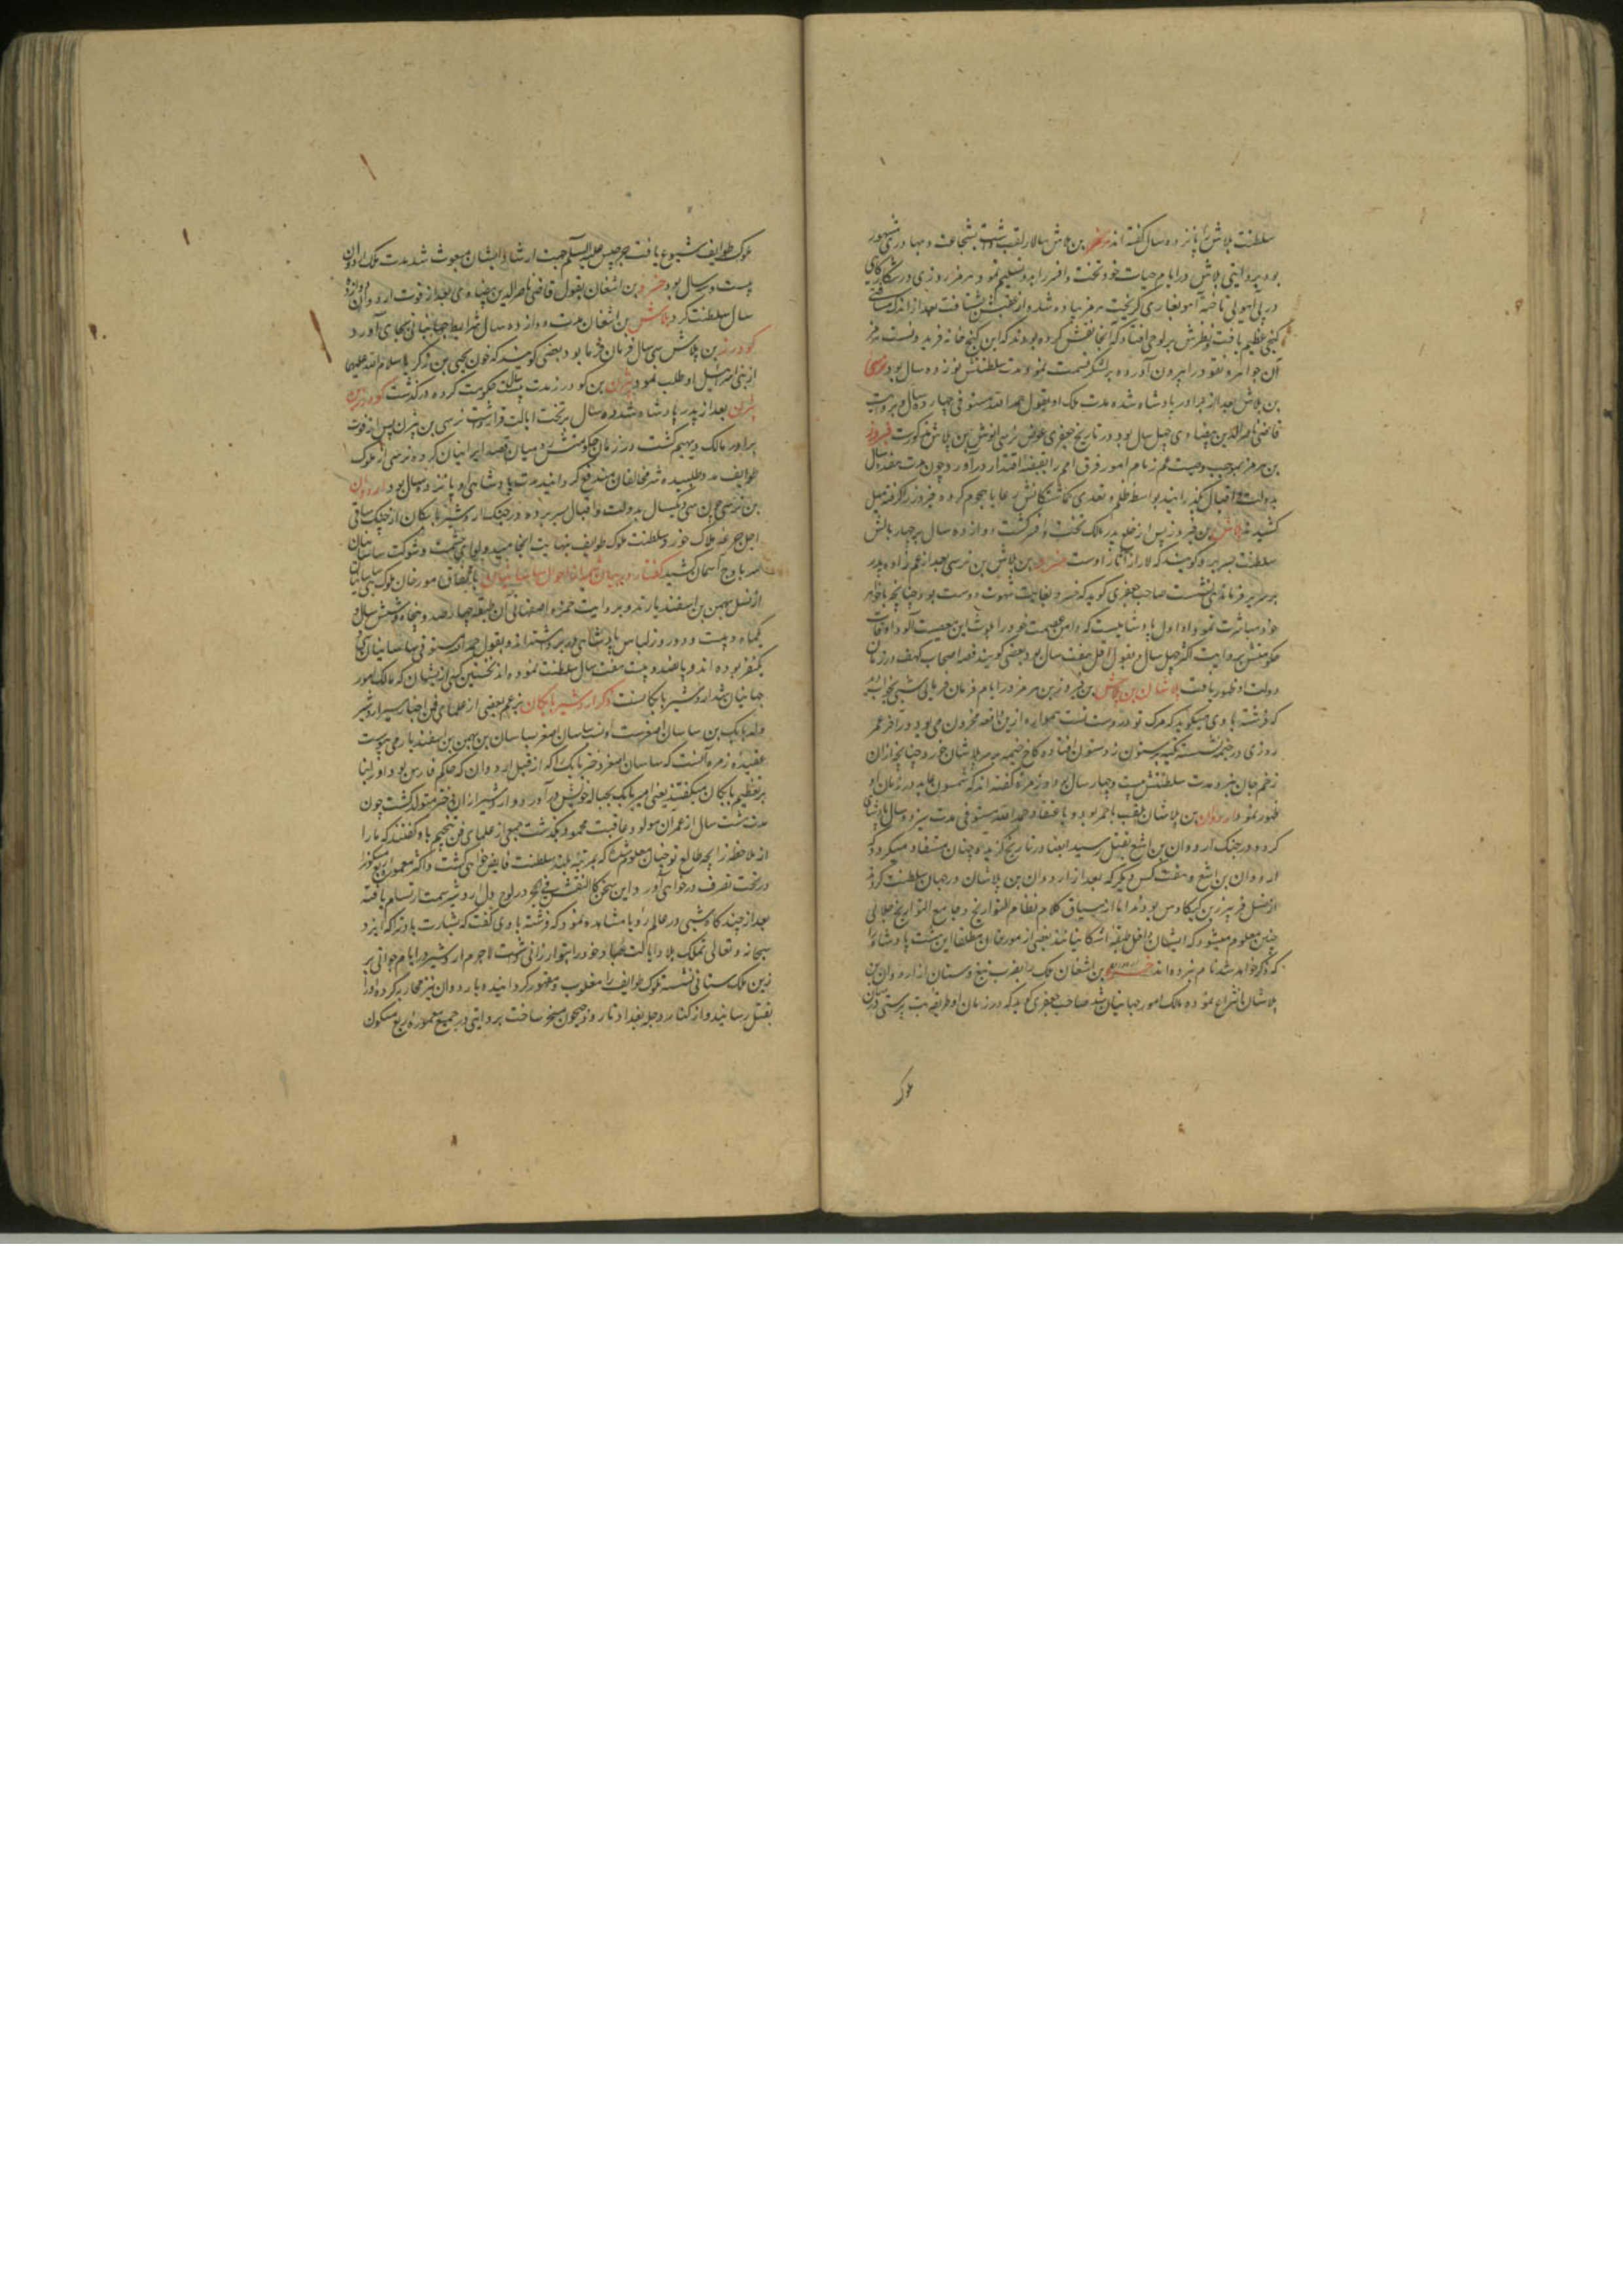 سلطنت بلاش را پانزده سال گفته اند هرمز بن بلاش سالار لقب داشت بشجاعت و بهادری مشهور
بود بروایتی بلاش در ایام حیات خود تخت و افسر را بدو تسلیم نمود هرمز روزی در شکارگاهی
در پی آهویی تاخته آهو بغاری گریخت هرمز پیاده شد و از عقبش بشتافت بعد از اندک مسافتی
گنجی عظیم یافت و نظرش بر لوحی افتاد که آنجا نقش کرده بودند که این گنج خانه فریدونست هرمز
آن جواهر و نقود را بیرون آورده بر لشکر قسمت نمود مدت سلطنتش نوزده سال بود نرسی
بن بلاش بعد از برادر پادشاه شد مدت ملک او بقول حمد الله مستوفی چهارده سال و بروایت
قاضی ناصرالدین بیضاوی چهل سال بود و در تاریخ جعفری عوض نرسی انوش بن بلاش مذکورست فیروز
بن هرمز بموجب وصیت عم زمام امور فرق امم را بقبضه اقتدار درآورد و چون مدت هفده سال
بدولت و اقبال بگذرانید بواسطه ظلم و تعدی گماشتگانش رعایا هجوم کرده فیروز را گرفته میل
کشیدند بلاش بن فیروز پس از خلع پدر مالک تخت و افسر گشت دوازده سال بر چهار بالش
سلطنت بسر برد و گویند که لار از آثار اوست خسرو بن بلاش بن نرسی بعد از عم زاده پدر
بر سریر فرماندهی نشست صاحب جعفری گوید که خسرو بغایت شهوت دوست بود چنانچه با خواهر
خود مباشرت نمود و او اول پادشاهیست که دامن عصمت خود را بلوث این معصیت آلود اوقات
حکومتش بروایت اکثر چهل سال و بقول اقل هفت سال بود بعضی گویند قصه اصحاب کهف در زمان
دولت او ظهور یافت بلاشان بن بلاش بن فیروز بن هرمز در ایام فرمان فرمایی شبی بخواب دید
که فرشته با وی میگوید که مرگ تو در دست تست همواره ازین واقعه محزون می بود در آخر عمر
روزی در خیمه نشسته تکیه بر ستون زد ستون افتاده کاخ خیمه بر سر بلاشان خورد چنانچه از آن
زخم جان سپرد مدت سلطنتش بیست و چهار سال بود و زمره گفته اند که شمسون عابد در زمان او
ظهور نمود اردوان بن بلاشان ملقب باحمر بود و باعتقاد حمد الله مستوفی مدت سیزده سال پادشاهی
کرده در جنگ اردوان بن اشغ بقتل رسید ایضا در تاریخ گزیده چنان مستفاد میگردد که
اردوان بن اشغ و هفت کس دیگر که بعد از اردوان بن بلاشان در جهان سلطنت کردند
از نسل فریبرز بن کیکاوس بودند اما از سیاق کلام نظام التواریخ و جامع التواریخ جلالی
چنین معلوم میشود که ایشان داخل طبقه اشکانیانند بعضی از مورخان مطلقا این هشت پادشاه را
که ذکر خواهد شد نام نبرده اند خسرو بن اشغان ملک را بضرب تیغ و سنان از اردوان بن
بلاشان انتزاع نموده مالک امور جهانیان شد صاحب جعفری گوید که در زمان او طریقه بت پرستی در میان
ملوک
ملوک طوایف شیوع یافت جرجیس علیه السلم جهت ارشاد ایشان مبعوث شد مدت ملک اردوان
بیست و سه سال بود خسرو بن اشغان بقول قاضی ناصرالدین بیضاوی بعد از فوت اردوان پانزده
سال سلطنت کرد بلاش بن اشغان مدت دوازده سال شرایط جهانبانی بجای آورد
گودرز بن بلاش سی سال فرمان فرما بود بعضی گویند که خون یحیی بن زکریا سلام الله علیهما
از بنی اسرائیل او طلب نمود بیژن بن گودرز مدت بیست سال حکومت کرده درگذشت گودرز بن
بیژن بعد از پدر پادشاه شد ده سال بر تخت ایالت قرار داشت نرسی بن بیژن پس از فوت
برادر مالک دیهیم گشت در زمان حکومتش رومیان قصد ایرانیان کرده نرسی از ملوک
طوایف مدد طلبیده شر مخالفان مندفع گردانید مدت پادشاهی وی پانزده سال بود اردوان
بن نرسی چون سی و یکسال بدولت و اقبال بسر برد در جنگ اردشیر بابکان از چنگ ساقی
اجل جرعه هلاک خورد و سلطنت ملوک طوایف بنهایت انجامید و لوای حشمت و شوکت ساسانیان
سر باوج آسمان کشید گفتار در بیان شمه از احوال ساسانیان باتفاق مورخان ملوک ساسانیان
از نسل بهمن بن اسفندیارند و بروایت حمزه اصفهانی آن طبقه چهار صد و پنجاه و شش سال و
یکماه و بیست و دو روز لباس پادشاهی در بر داشته اند و بقول حمد الله مستوفی ساسانیان سی و
یکنفر بوده اند و پانصد و بیست هفت سال سلطنت نموده اند نخستین کسی از ایشان که مالک امور
جهانیان شد اردشیر بابکانست ذکر اردشیر بابکان بزعم بعضی از علمای فن اخبار سیر اردشیر
ولد بابک بن ساسان اصغرست و نسب ساسان اصغر بساسان بن بهمن بن اسفندیار می پیوست
عقیده زمره آنست که ساسان اصغر دختر بابک را که از قبل اردوان که حاکم فارس بود و او را بنا
بر تعظیم بابکان میگفتند یعنی امیر بابک بحباله خویش درآورد و اردشیر از آن دختر متولد گشت چون
مدت شت سال از عمر آن مولود عاقبت محمود بگذشت جمعی از علمای فن تنجیم با او گفتند که ما را
از ملاحظه زایچه طالع تو چنان معلوم شد که بمرتبه بلند سلطنت فایض خواهی گشت و اکثر معموره ربع مسکون را
در تحت تصرف درخواهی آورد و این سخن کالنقش فی الحجر در لوح دل اردشیر سمت ارتسام یافته
بعد از چند گاه شبی در عالم رؤیا مشاهده نمود که فرشته با وی گفت که بشارت باد ترا که ایزد
سبحانه و تعالی تملک بلاد و ایالت عباد خود را بتو ارزانی داشت لاجرم اردشیر در ایام جوانی بر
زین ملک ستانی نشسته ملوک طوایف را مغلوب و مقهور گردانید و با اردوان نیز محاربه کرده او را
بقتل رسانید و از کنار دجله بغداد تا رود جیحون مسخر ساخت بروایتی در جمیع معموره ربع مسکون